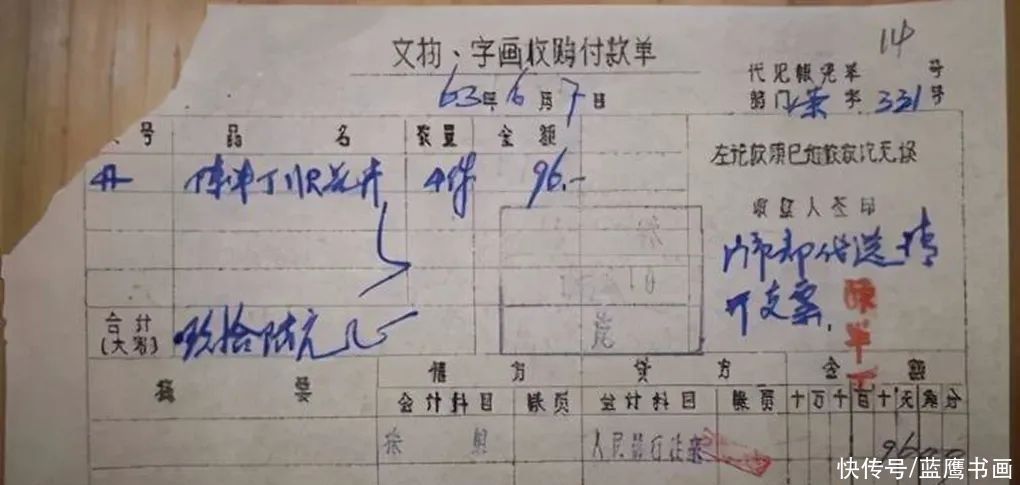 14
文物、字画收购付款单
代记帐凭单 号
63年6月7日
部门 字 331号
号 品名 数量 金额
左记款项已如数收讫无误
陈半丁 花卉 4件 96.-
收款人签印
代送 请
开支票
陈半丁
合计
(大写) 玖拾陆元
摘要 借方 贷方 金额
会计科目 帐页 会计科目 帐页 十万千百十元角分
人民银行往来 9600
快传号/蓝鹰书画